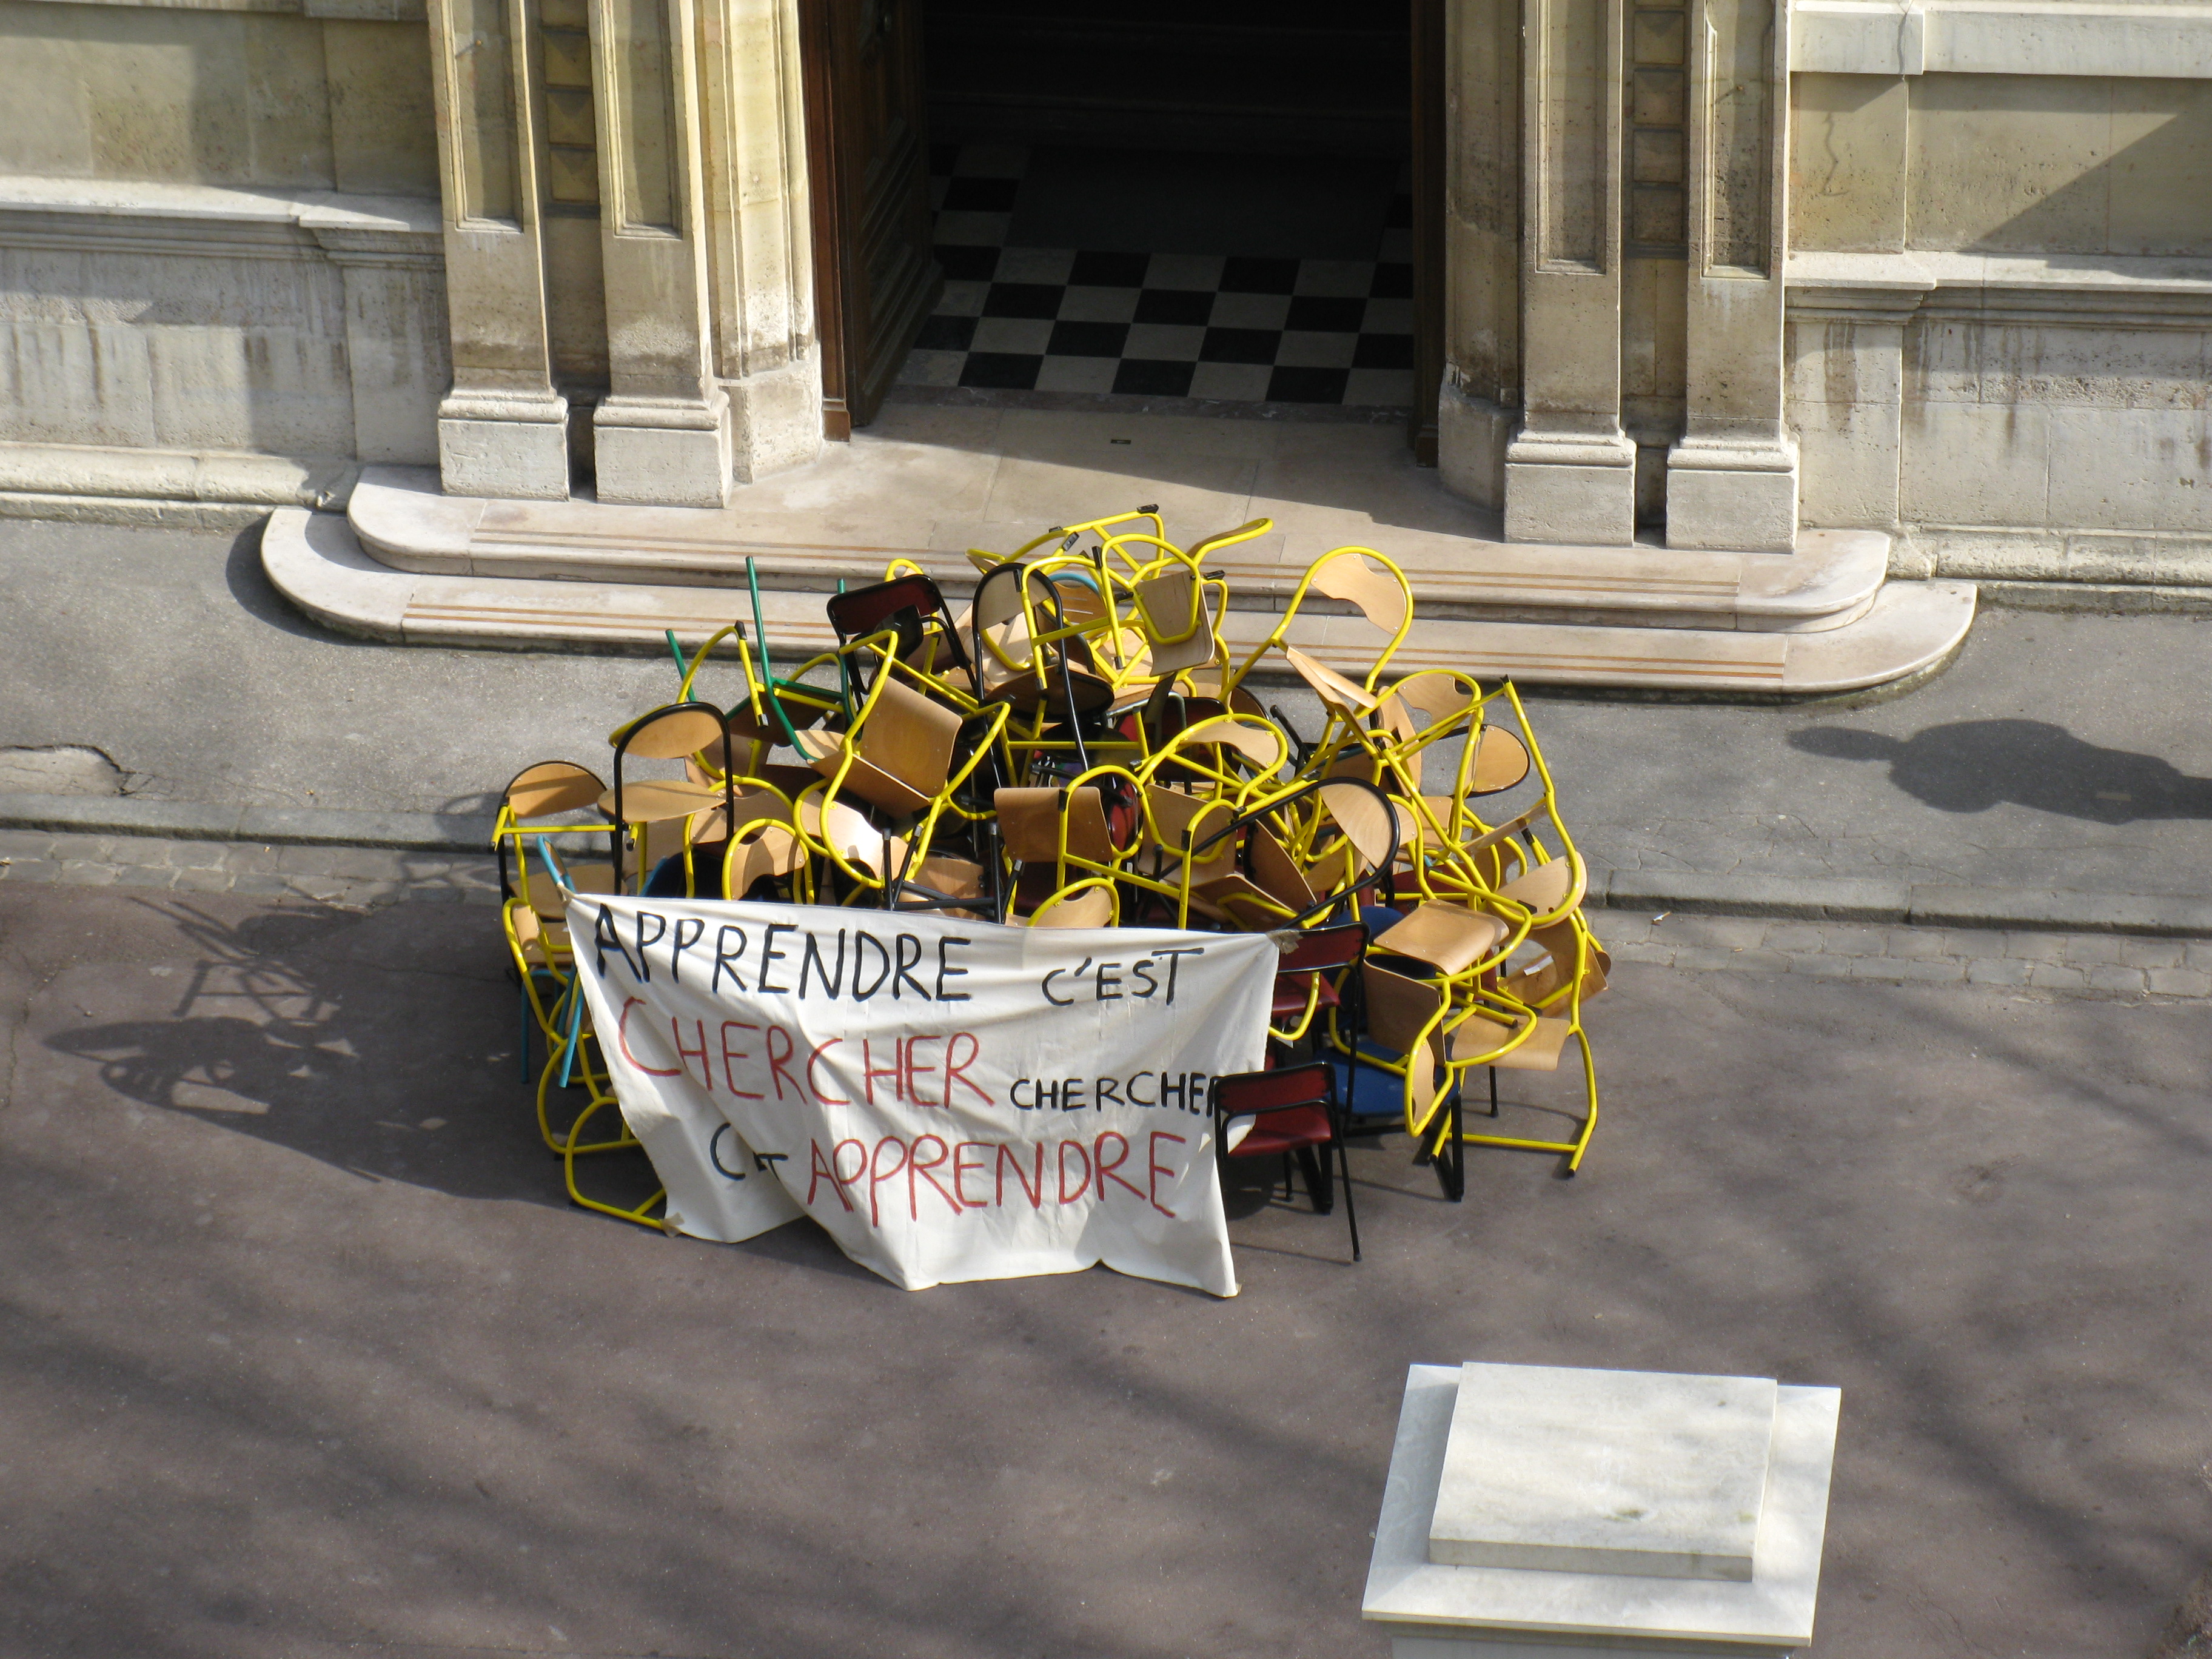 APPRENDRE C'EST
CHERCHER CHERCHER
APPRENDRE